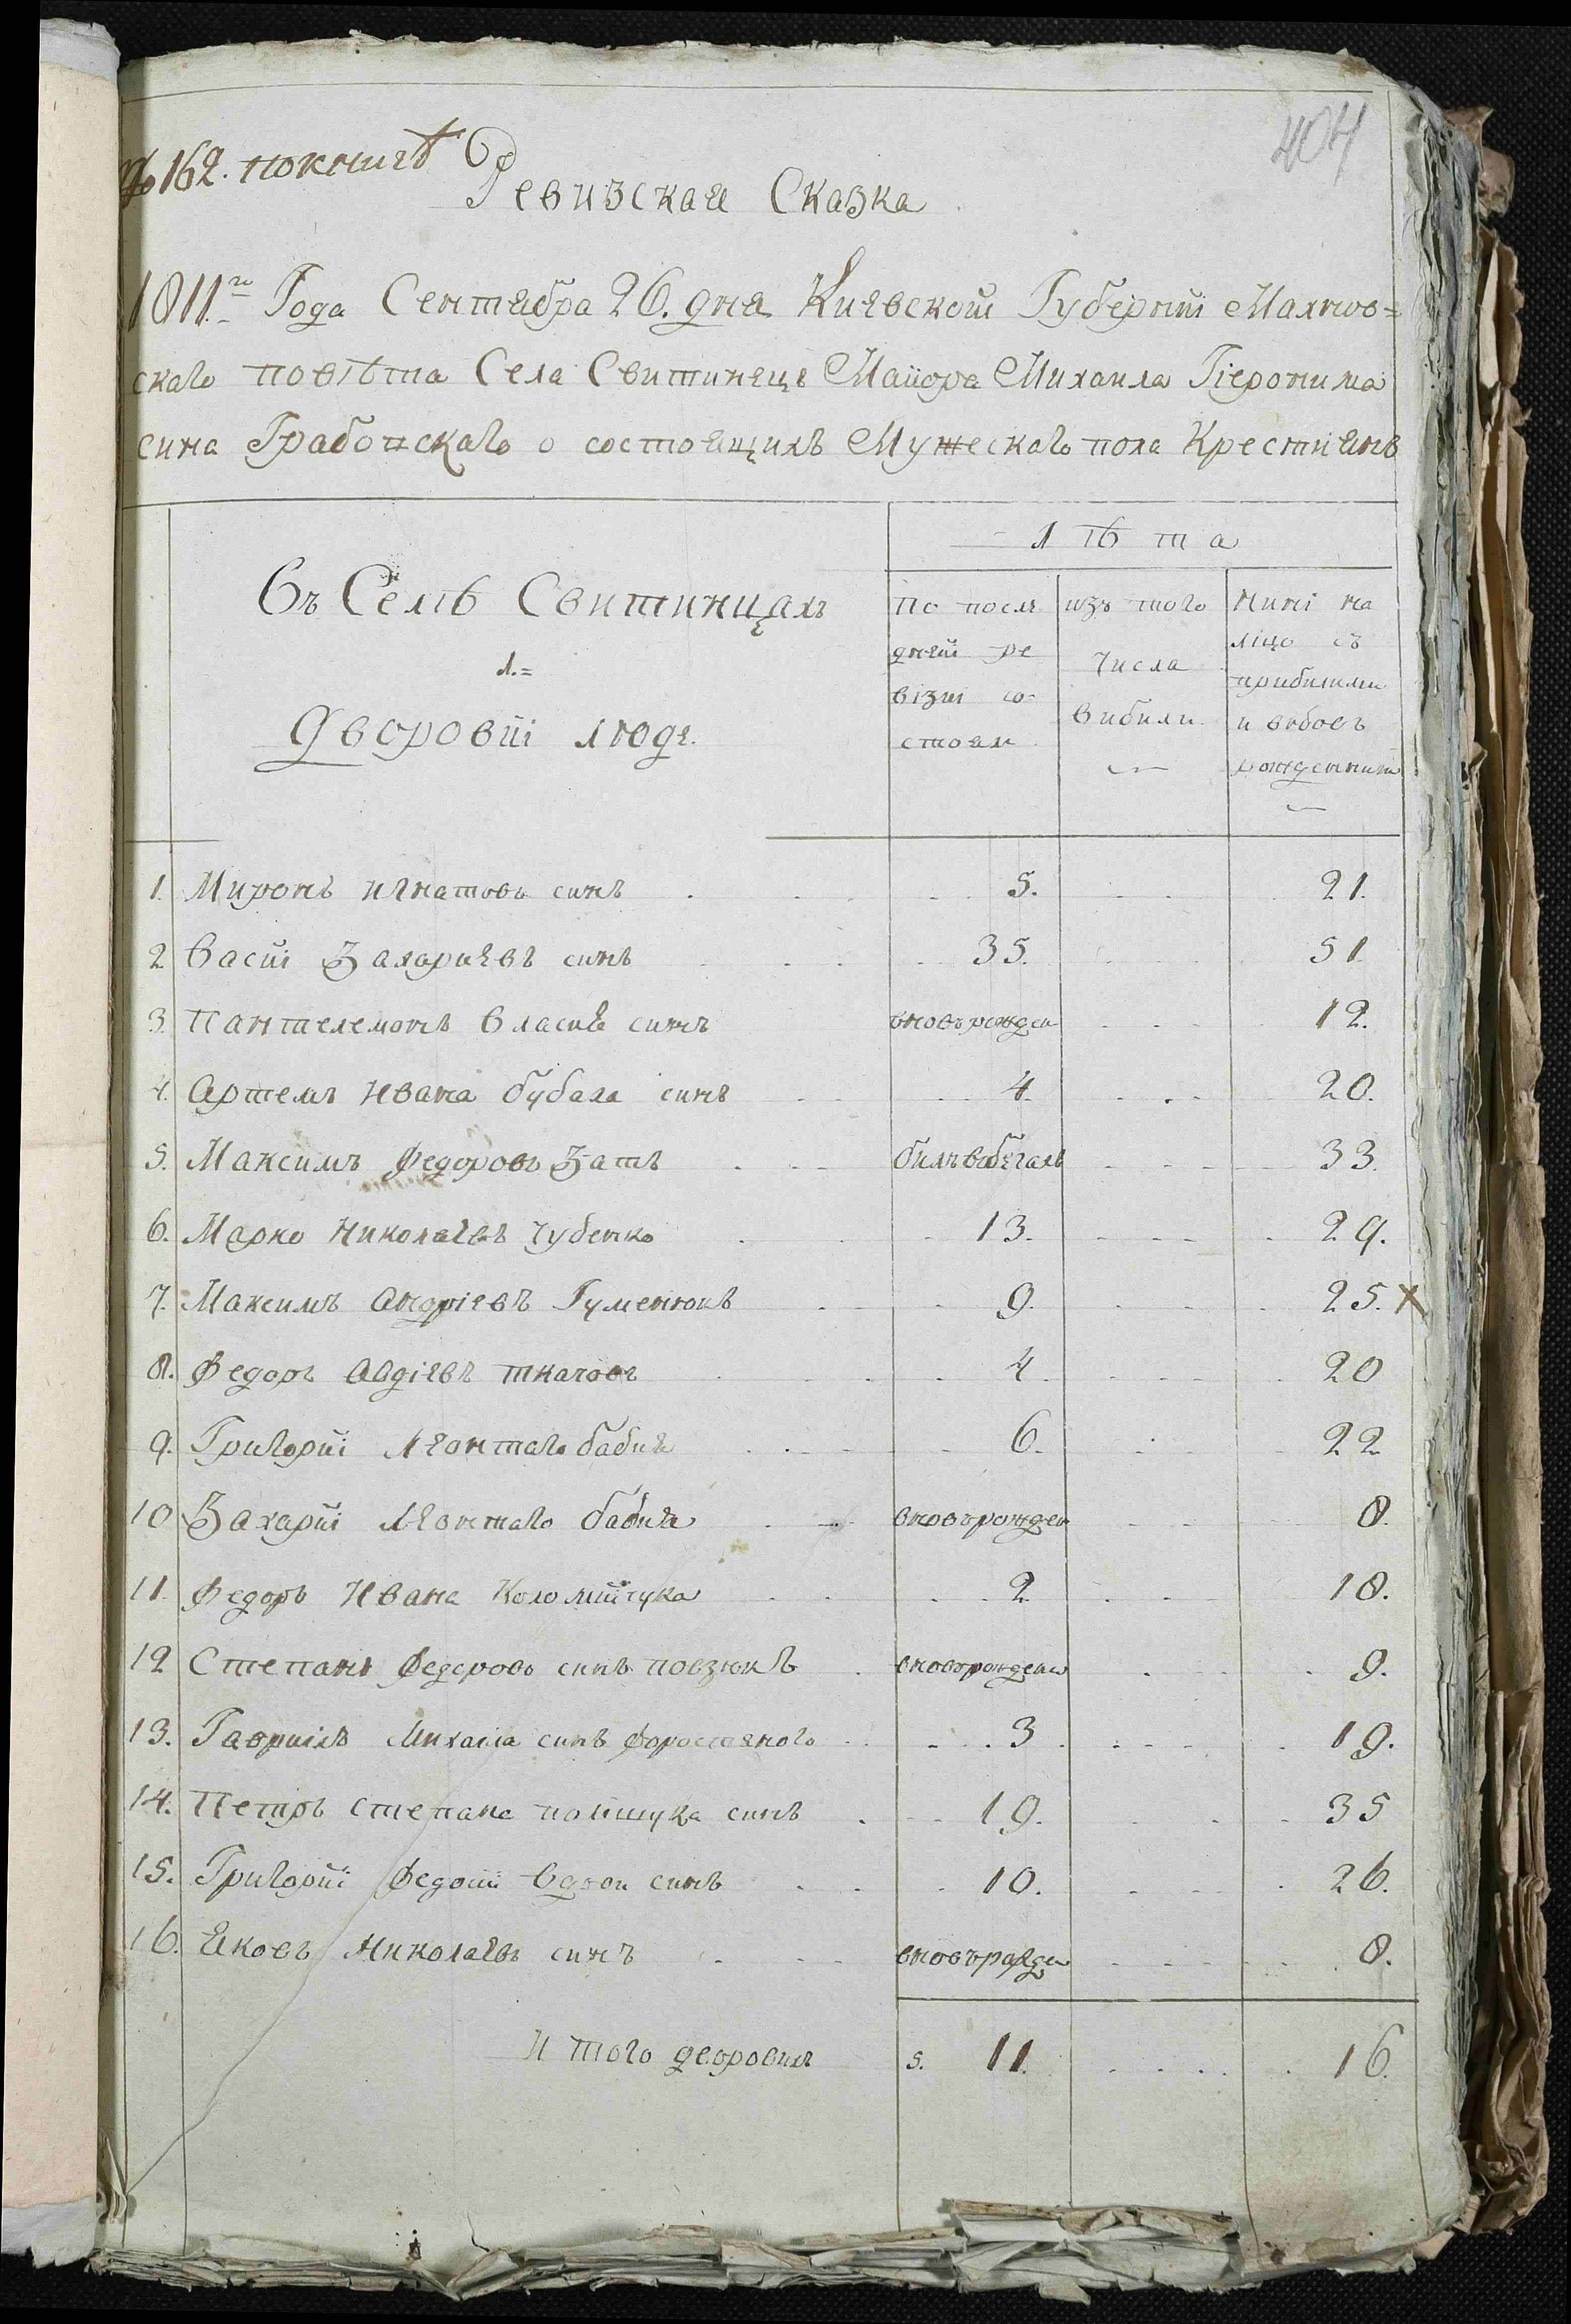 № 162. покнигѣ
404
Ревизская Сказка
1811го Года Сентября 26. дня Киевской Губернии Махнов=
скаго повѣта Села Свитинець Маиора Михаила Гіеронима
сина Грабовскаго о состоящихъ Мужескаго пола Крестиянъ
лѣта
въ Селѣ Свитинцахъ
1.=
Дворовіи люде.
По послѣ
дней ре
візіи со-
стоял
изъ того
числа
вибили
нині на
ліцо съ
прибилими
и вновъ
рожденними
1. Миронъ игнатовъ синъ 5. 21.
2 Васіи Захариевъ синъ 35. 51.
3. Пантелемонъ Власиев синъ вновърожден 12.
4. Артемъ Ивана бубала синъ 4. 20.
5. Максимъ Федоровъ Зать билъвбѣгахъ 33.
6. Марко Николаевъ Чубенко 13. 29.
7. Максимъ андріевъ Гуменюкъ 9. 25. х
8. Федоръ авдіевъ ткачовъ 4. 20
9. Григорій Леонтаго бабия 6. 22
10 Захарій Леонтаго бабия вновърожден 8.
11. Федоръ Ивана Коломійчука 2 18.
12 Степанъ Федоровъ синъ повзюкъ вновърожден 9.
13. Гавриілъ Михаіла синъ форостяного 3. 19.
14. Петръ степана поліщука синъ 19. 35
15. Григорій Федоіи вдови синъ 10. 26.
16. Яковъ Николаевъ синъ вновърожден 8.
И того дворовихъ 5. 11. 16.